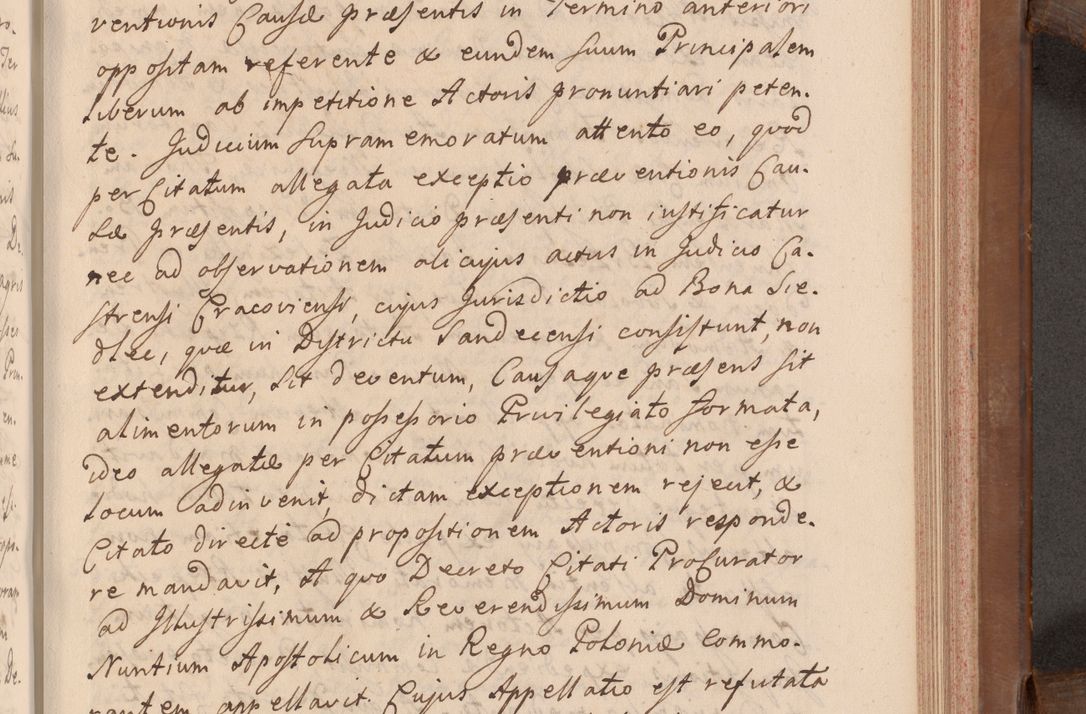 ventionis Causæ præsentis in Termino anteriori
oppositam referente & eundem suum Principalem
liberum ab impetitione Actoris pronuntiari peten-
te. Judicium supramemoratum attento eo, quod
per Citatum allegata exceptio præventionis Cau-
sæ præsentis, in Judicio præsenti non iustificatur
nec ad observationem alicujus actus in Judicio Ca-
strensi Cracoviensi, cujus Jurisdictio ad Bona Sie-
dlec, quæ in Districtu Sandecensi consistunt, non
extenditur, sit deventum, Causaque præsens sit
alimentorum in possessorio Privilegiato formata,
ideo allegatæ per Citatum præventioni non esse
locum adinvenit, dictam exceptionem rejecit, &
Citato directè ad propositionem Actoris responde-
re mandavit, A quo Decreto Citati Procurator
ad Illustrissimum & Reverendissimum Dominum
Nuntium Apostolicum in Regno Poloniæ Commo-
rantem appellavit. Cujus Appellatio est refutata